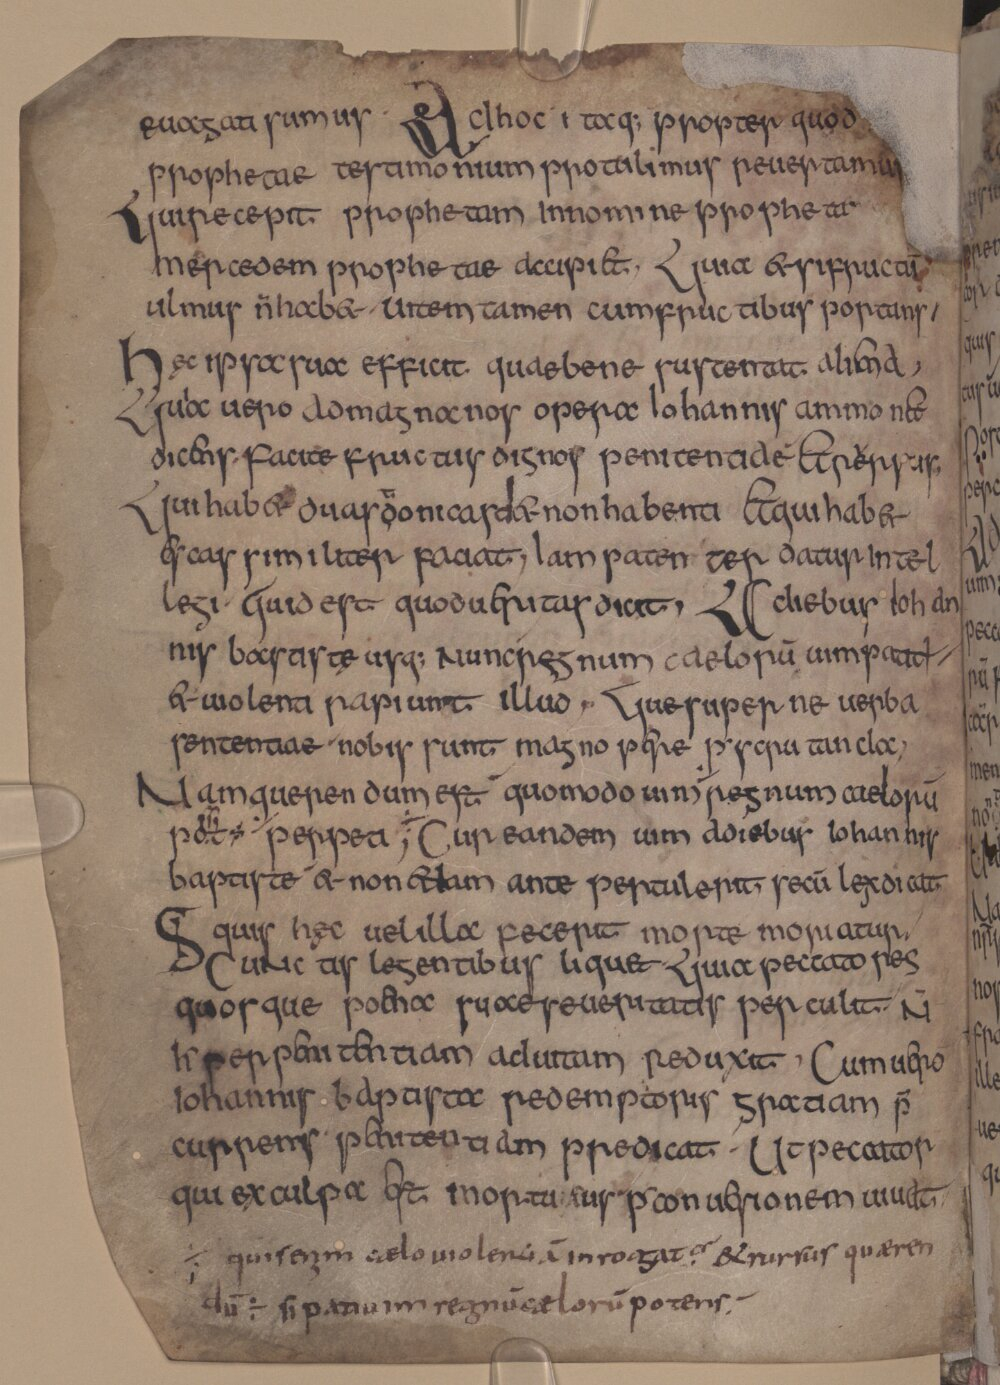 evagati sumus · Ad hoc itaq; propter quod
prophetae testimonium protulimus revertamur
Qui recepit prophetam in nomine prophetae
mercedem prophetae accipiet, Quia & si fructū
ulmus n̄ habet · vitem tamen cum fructibus portans,
hęc ipsa sua efficit quae bene sustentat aliena,
Quia vero ad magna nos opera Iohannis ammonet
dicens · facite fructus dignos penitentiae Et rursus,
Qui hab& duas tonicas det non habenti Et qui hab&
escas similiter faciat, Iam patenter datur intel
legi · Quid est quod veritas dicit, A diebus Iohan
nis baptistę usq; nunc regnum caelorū vim patit~
& violenti rapiunt illud, Que superne verba
sententiae nobis sunt magnopere pscrutanda,
Nam querendum est quomodo vim regnum caelorū
pōt ·:· perpeti ⁊ Cur eandem vim a diebus Iohannis
baptiste & non etiam ante pertulerit, secū lex dicat
Si quis hęc vel illa fecerit morte moriatur,
Cunctis legentibus liqu& Quia peccatores
quosque poena suae severitatis perculit N̄
h per penitentiam ad vitam reduxit, Cum vero
Iohannis baptista redemptoris gratiam p̄
currens penitentiam predicat · Ut peccator
qui ex culpa est mortuus p conversionem vivat,
·:· quis enim cælo violentiā inrogat? & rursus quæren
dū ÷ si pati vim regnū cælorū potens ·